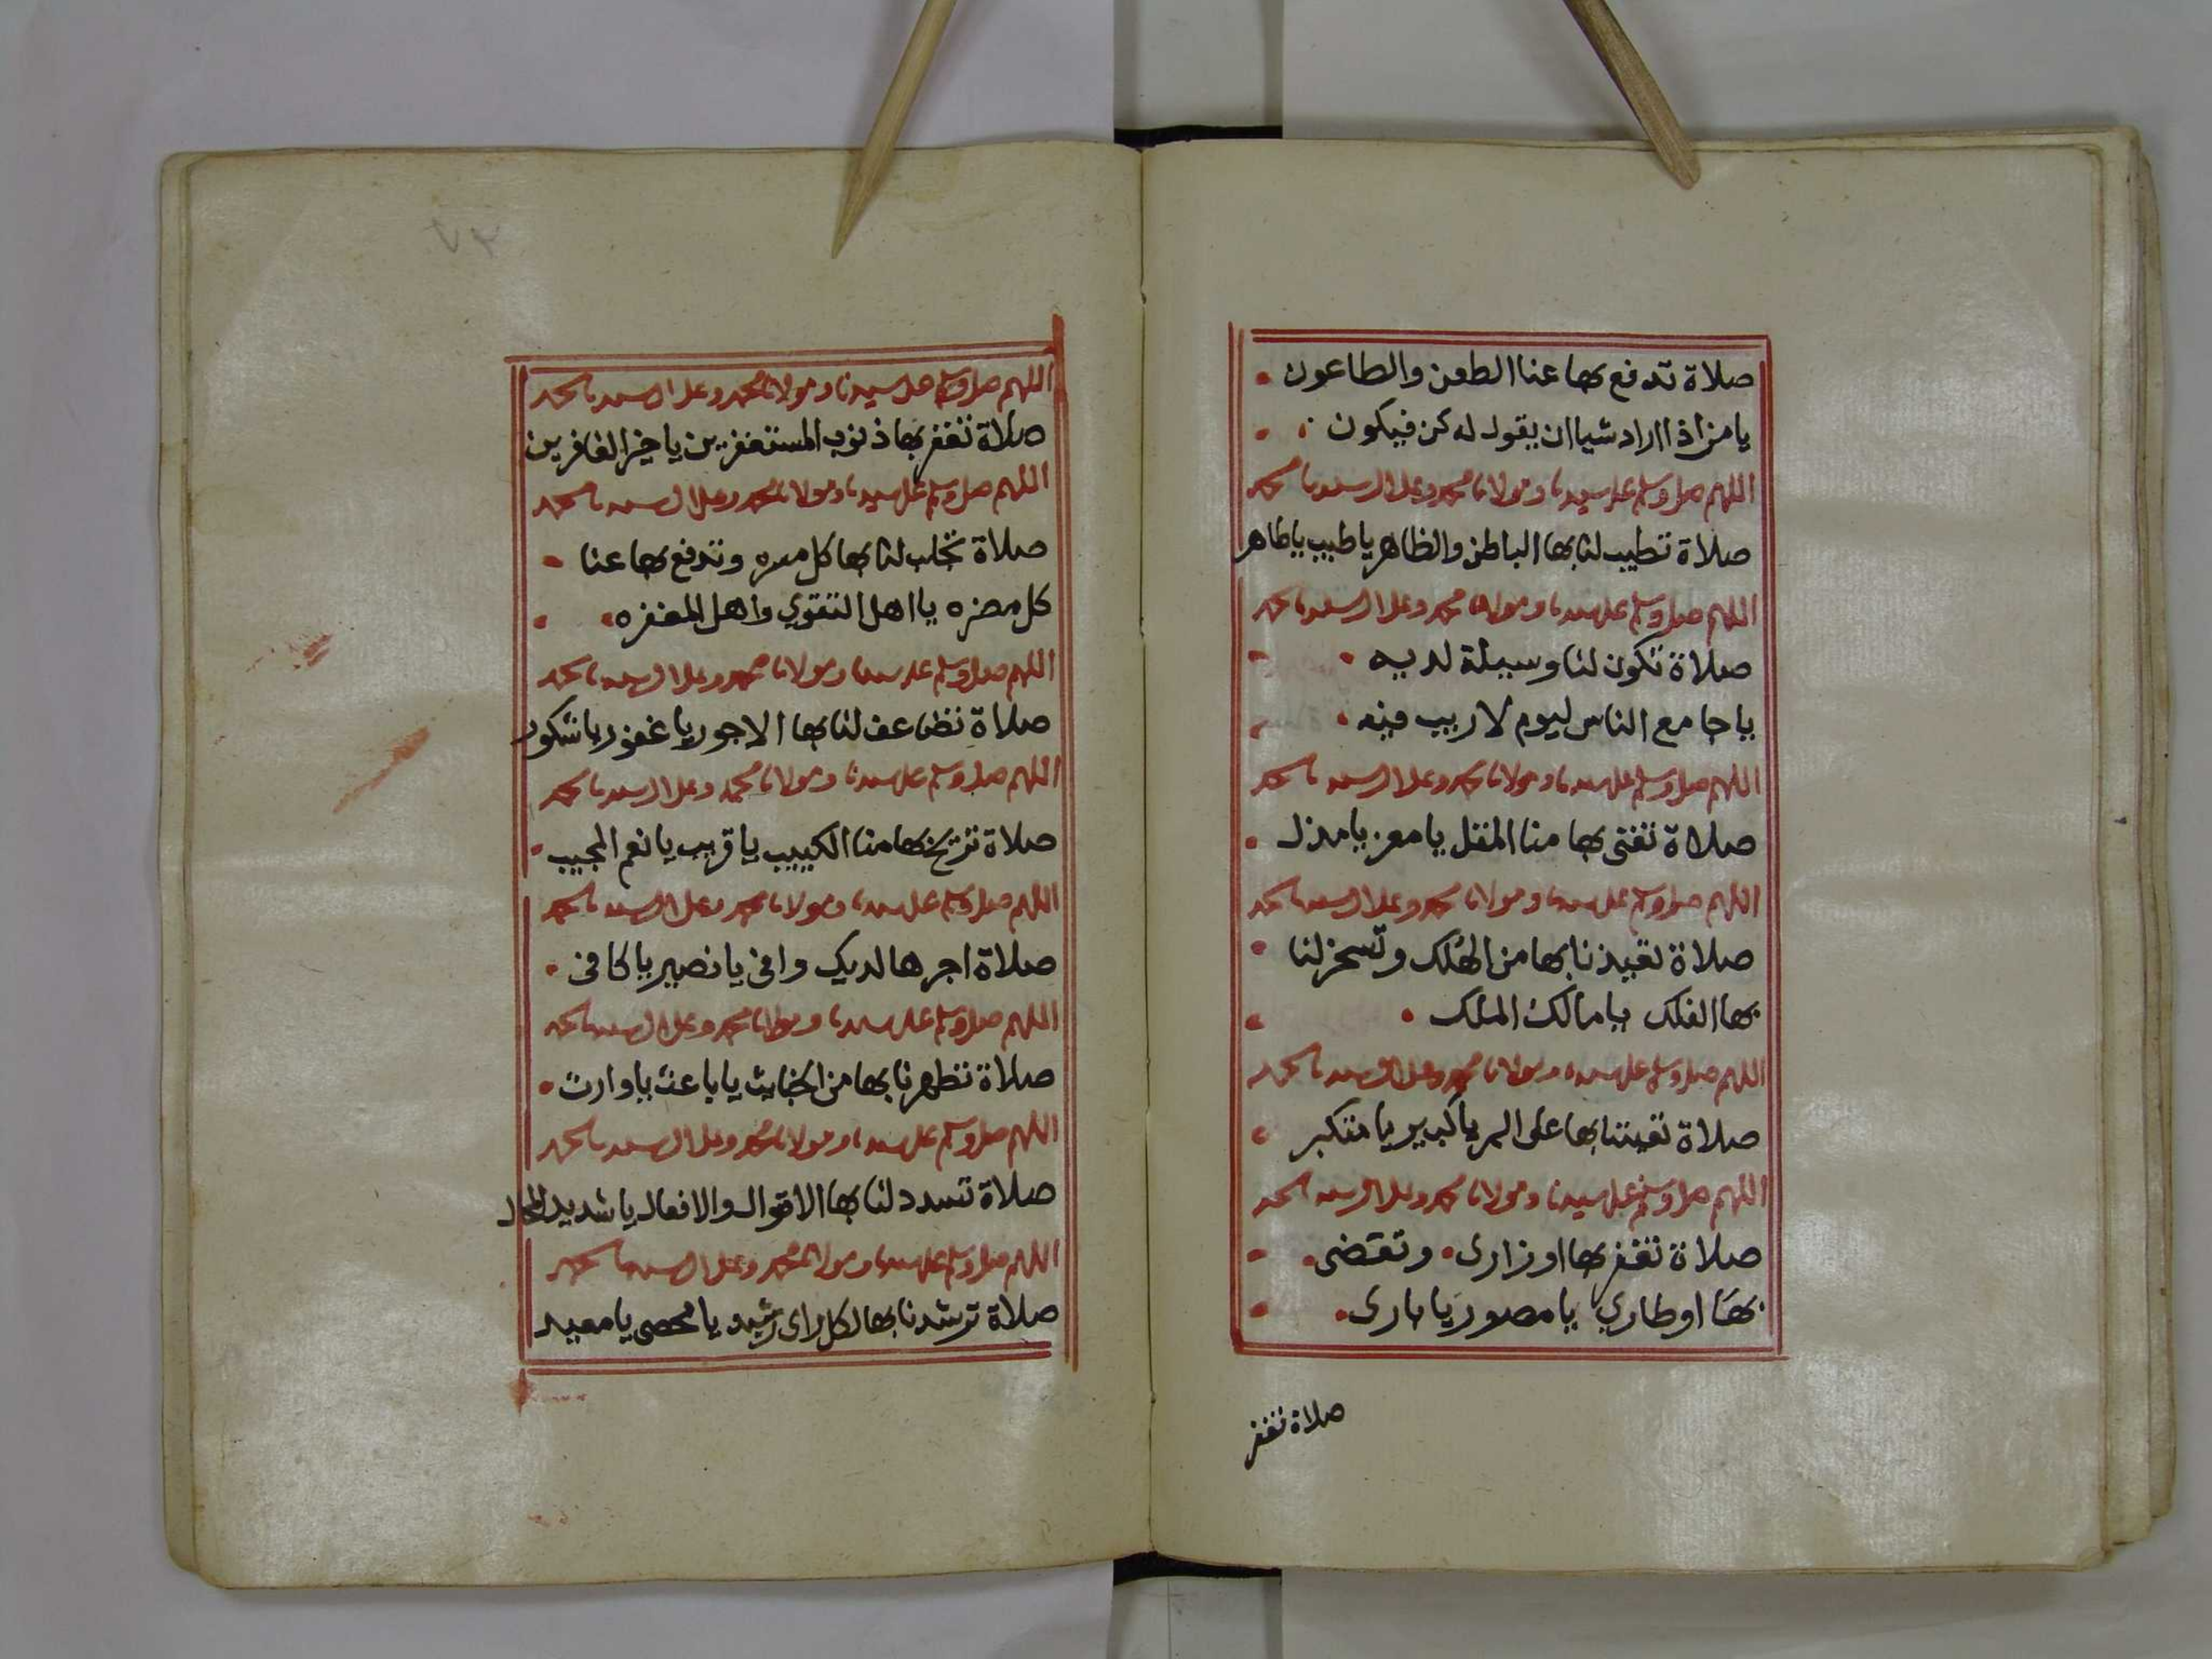 صلاة تدفع بها عنا الطعن والطاعون
يا من اذا اراد شيا ان يقول له كن فيكون
اللهم صل وسلم على سيدنا ومولانا محمد وعلى ال سيدنا محمد
صلاة تطيب لنا بها الباطن والظاهر يا طيب يا طاهر
اللهم صل وسلم على سيدنا ومولانا محمد وعلى ال سيدنا محمد
صلاة تكون لنا وسيلة لديه
يا جامع الناس ليوم لا ريب فيه
اللهم صل وسلم على سيدنا ومولانا محمد وعلى ال سيدنا محمد
صلاة تغنى بها منا المقل يا معز يا مذل
اللهم صل وسلم على سيدنا ومولانا محمد وعلى ال سيدنا محمد
صلاة تعيذنا بها من الهلك وتسخر لنا
بها الفلك يا مالك الملك
اللهم صل وسلم على سيدنا ومولانا محمد وعلى ال سيدنا محمد
صلاة تعيننا بها على البر يا كبير يا متكبر
اللهم صل وسلم على سيدنا ومولانا محمد وعلى ال سيدنا محمد
صلاة تغفر بها اوزارى وتقضى
بها اوطاري يا مصور يا بارى
صلاة تغفر
٧٣
اللهم صل وسلم على سيدنا ومولانا محمد وعلى ال سيدنا محمد
صلاة تغفر بها ذنوب المستغفرين يا خير الغافرين
اللهم صل وسلم على سيدنا ومولانا محمد وعلى ال سيدنا محمد
صلاة تجلب لنا بها كل مسره وتدفع بها عنا
كل مضره يا اهل التقوي واهل المغفره
اللهم صل وسلم على سيدنا ومولانا محمد وعلى ال سيدنا محمد
صلاة تضاعف لنا بها الاجور يا غفور يا شكور
اللهم صل وسلم على سيدنا ومولانا محمد وعلى ال سيدنا محمد
صلاة تريح بها منا الكييب يا قريب يا نعم المجيب
اللهم صل وسلم على سيدنا ومولانا محمد وعلى ال سيدنا محمد
صلاة اجرها لديك وافى يا نصير يا كافى
اللهم صل وسلم على سيدنا ومولانا محمد وعلى ال سيدنا محمد
صلاة تطهرنا بها من الخبايث يا باعث يا وارث
اللهم صل وسلم على سيدنا ومولانا محمد وعلى ال سيدنا محمد
صلاة تسدد لنا بها الاقوال والافعال يا شديد المحال
اللهم صل وسلم على سيدنا ومولانا محمد وعلى ال سيدنا محمد
صلاة ترشدنا بها لكل راى رشيد يا محصى يا معيد